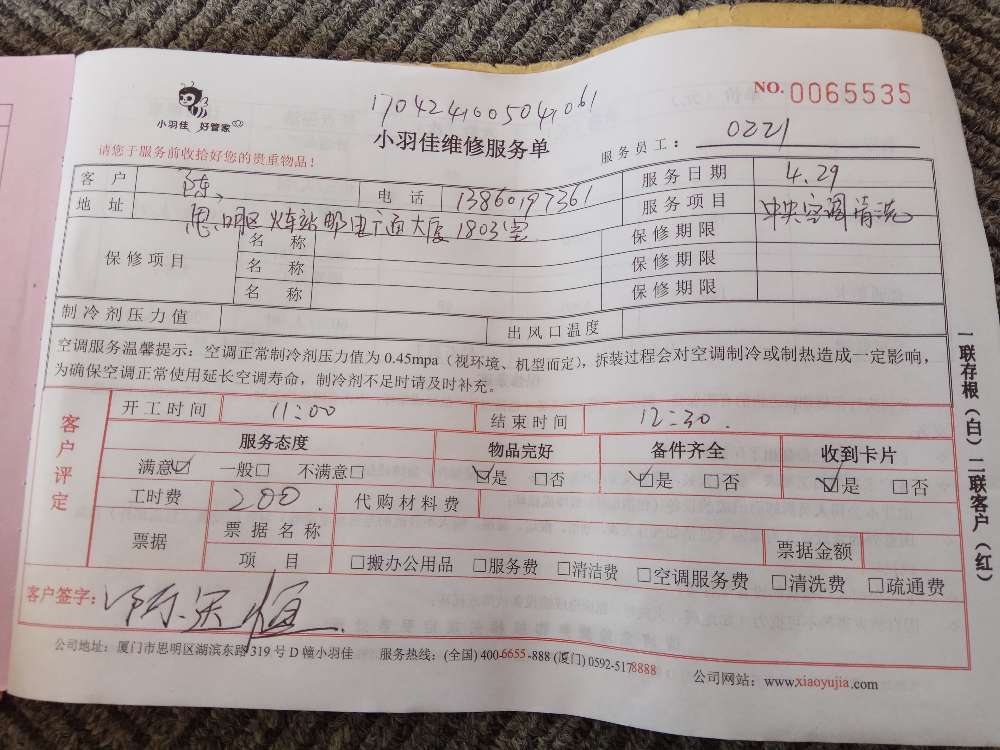 NO. 0065535
170424100504061
小羽佳 好管家
小羽佳维修服务单
服务员工: 0221
请您于服务前收拾好您的贵重物品!
客户 陈 电话 13860197361 服务日期 4.29
地址 思明区火车站邮电广通大厦1803室 服务项目 中央空调清洗
保修项目 名称 保修期限
名称 保修期限
名称 保修期限
制冷剂压力值 出风口温度
空调服务温馨提示:空调正常制冷剂压力值为0.45mpa(视环境、机型而定),拆装过程会对空调制冷或制热造成一定影响,
为确保空调正常使用延长空调寿命,制冷剂不足时请及时补充。
客户评定
开工时间 11:00 结束时间 12:30.
服务态度 物品完好 备件齐全 收到卡片
满意☑ 一般□ 不满意□ ☑是 □否 ☑是 □否 ☑是 □否
工时费 200. 代购材料费
票据 票据名称 票据金额
项目 □搬办公用品 □服务费 □清洁费 □空调服务费 □清洗费 □疏通费
客户签字:
公司地址:厦门市思明区湖滨东路319号D幢小羽佳 服务热线:(全国)400-6655-888 (厦门)0592-5178888
公司网站:www.xiaoyujia.com
一联存根(白)二联客户(红)